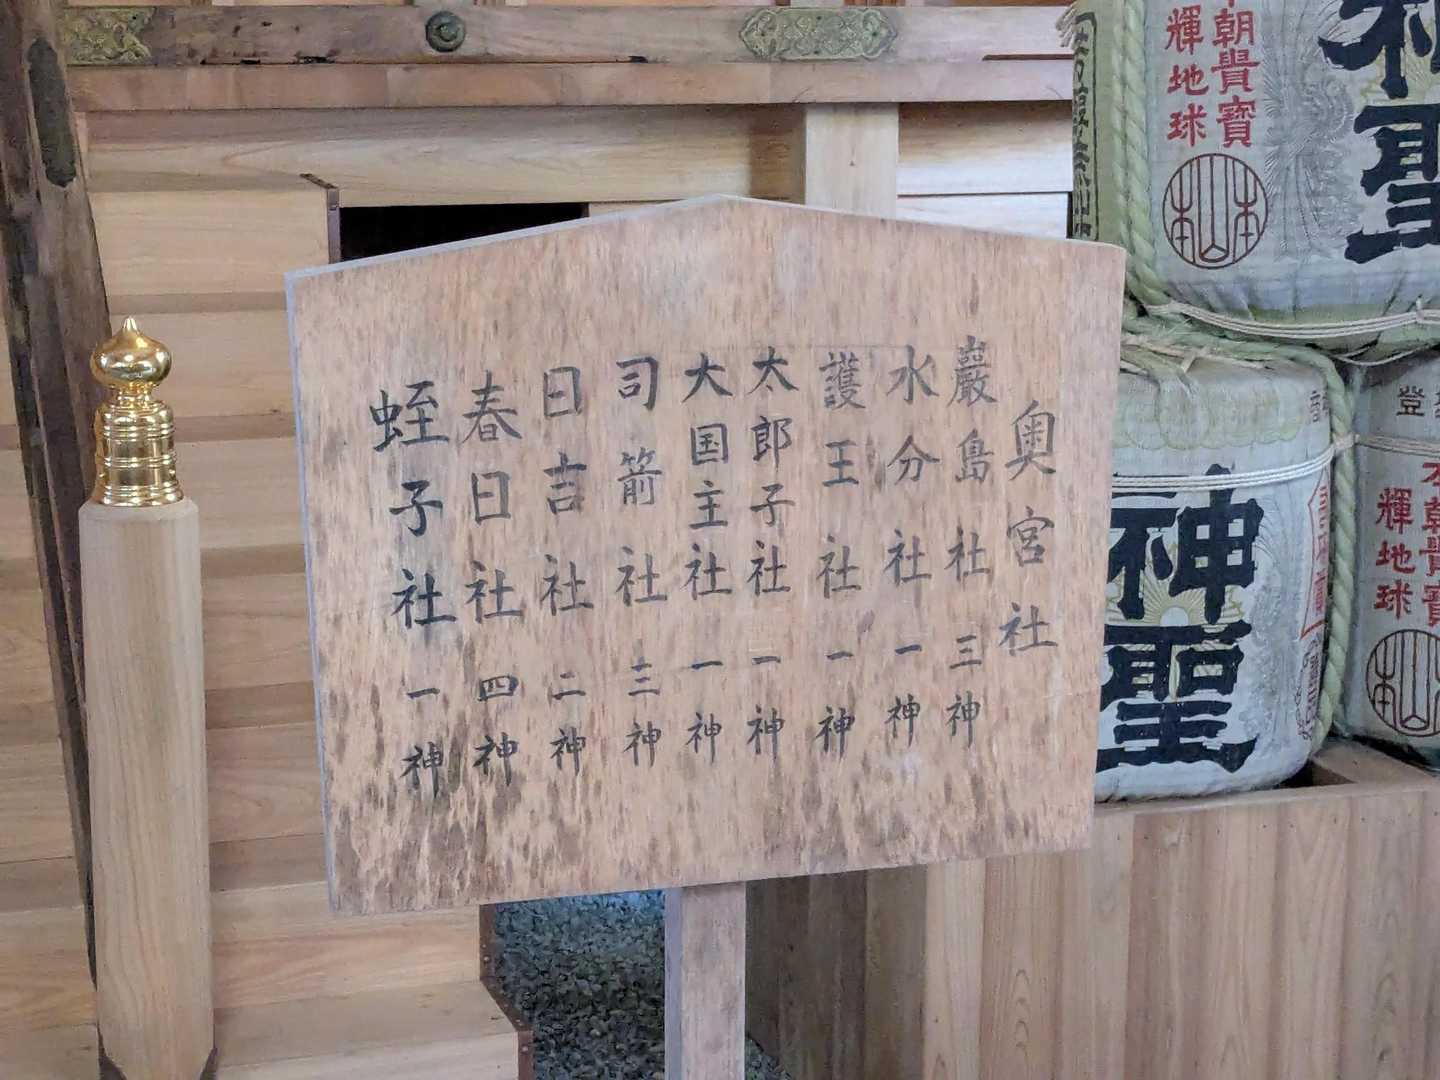 奥宮社
巖島社三神
水分社一神
護王社一神
太郎子社一神
大国主社一神
司箭社三神
日吉社二神
春日社四神
蛭子社一神
本朝貲寳
輝地球
山本
神聖
神聖
登
輝地球